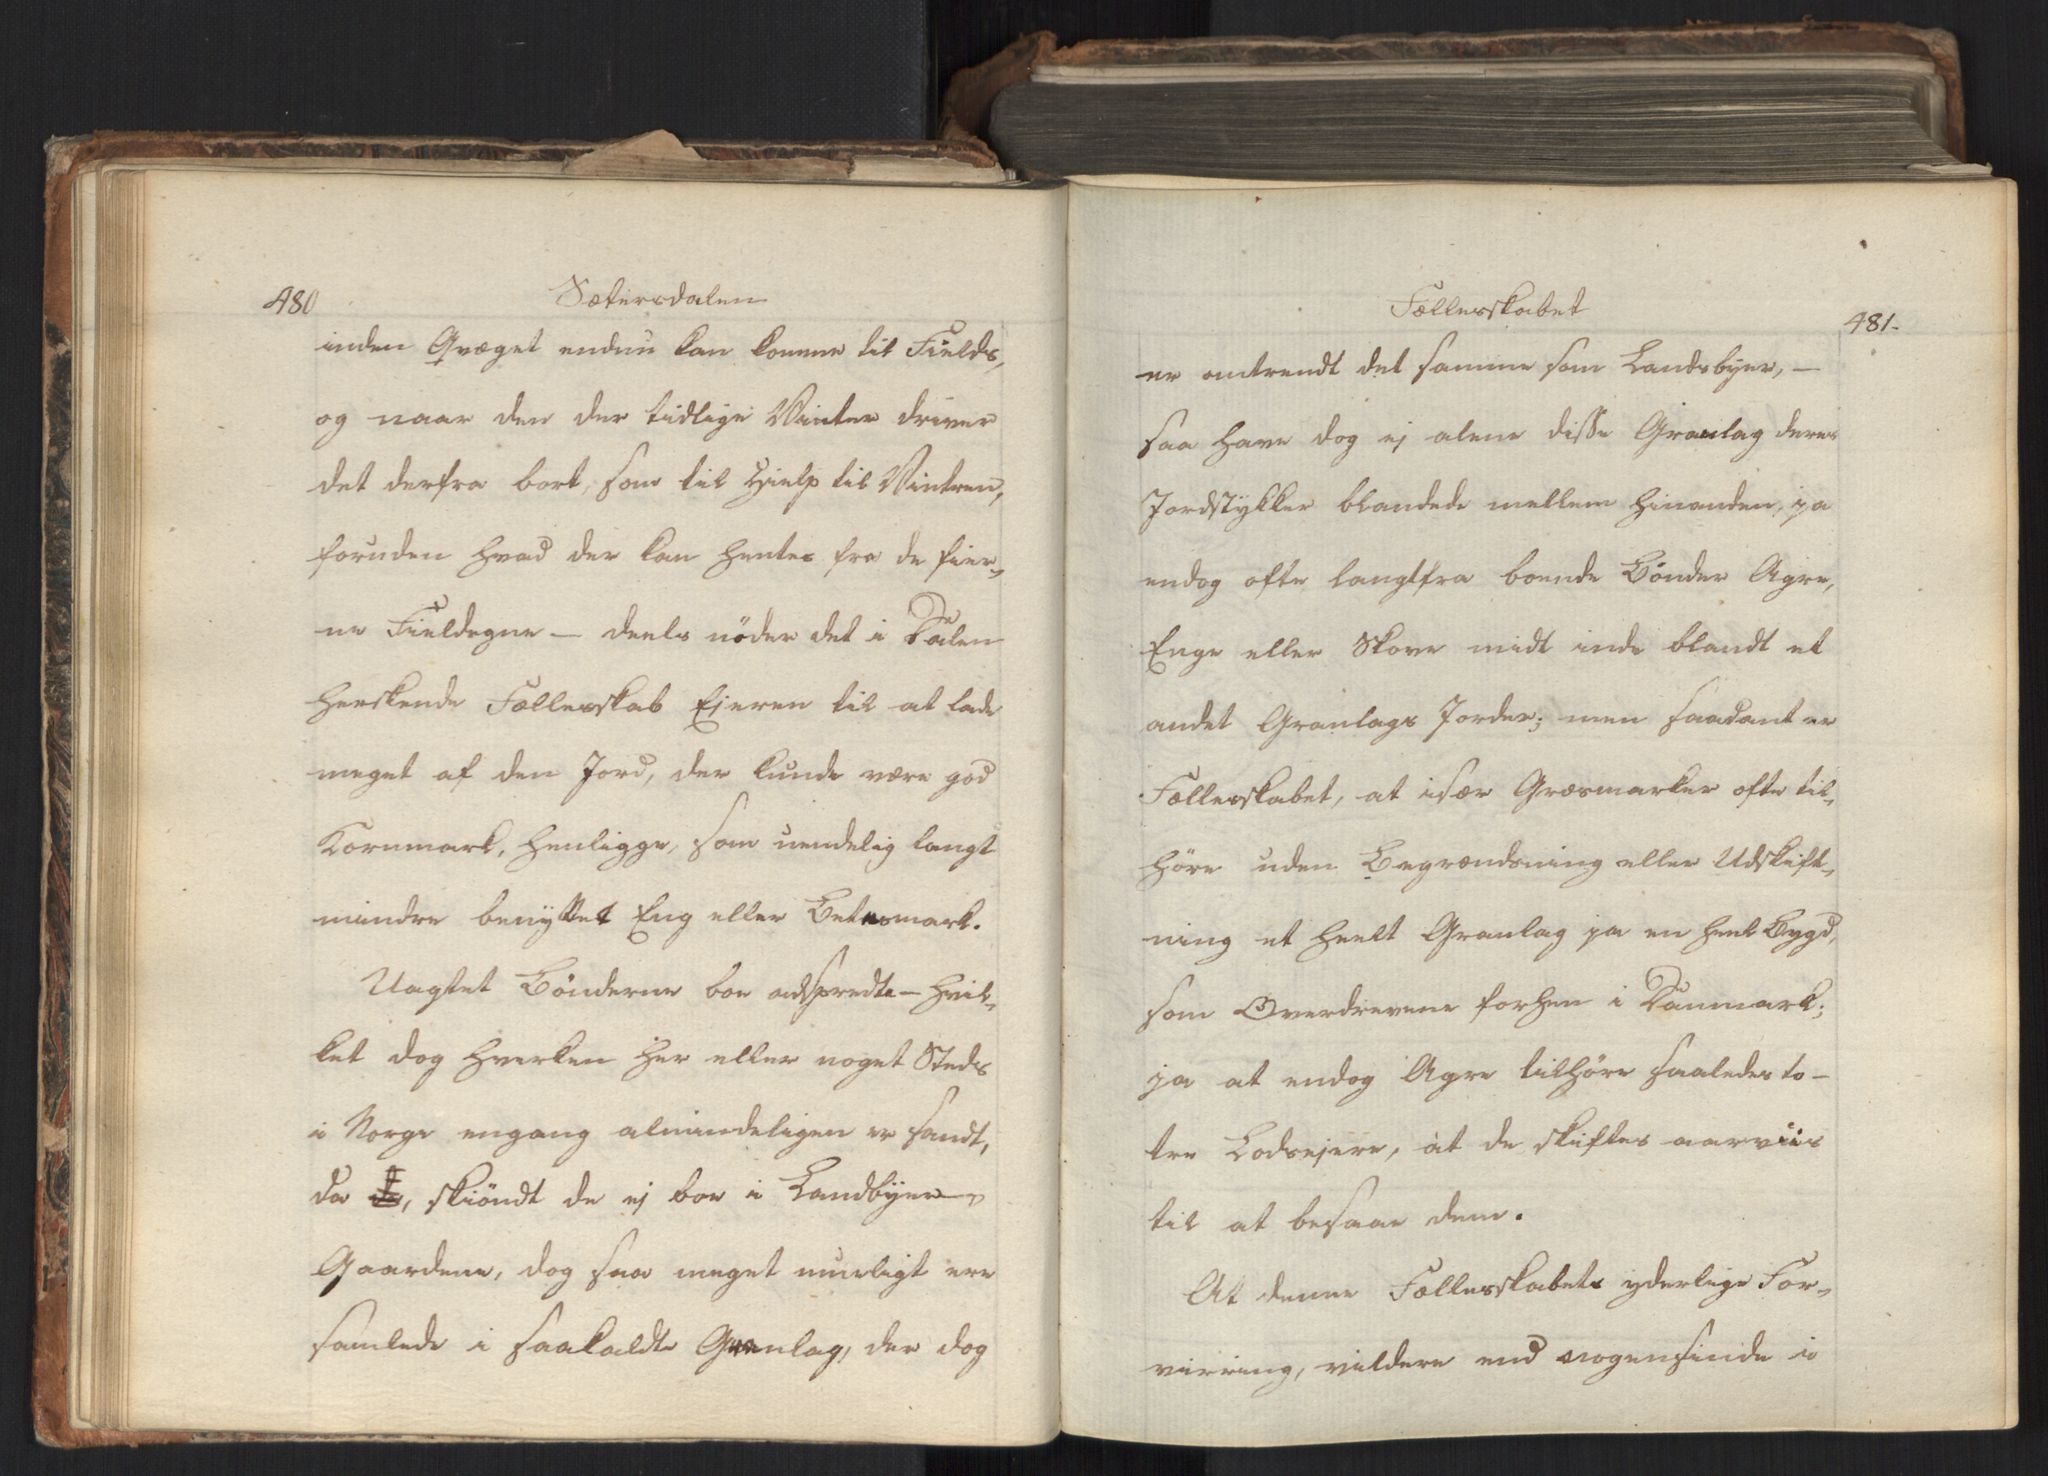 480
Sætersdalen
inden Qvæget endnu kan komme til Fields,
og naar den der tidlige Vinter driver
det derfra bort, som til Hielp til Vintren,
foruden hvad der kan hentes fra de fier-
ne Fieldegne — deels nöder det i Dalen
herskende Fællesskab Ejeren til at lade
meget af den Jord, der kunde være god
Kornmark, henligge, som uendelig langt
mindre benyttet Eng eller Betesmark.
Uagtet Bönderne boe adspredte — hvil-
ket dog hverken her eller noget Steds
i Norge engang almindeligen er sandt,
da, skiöndt de ej boe i Landbyer
Gaardene, dog saa meget mueligt ere
samlede i saakaldte Granlag, der dog
Fællesskabet
481-
er omtrendt det samme som Landsbyer, —
saa have dog ej alene disse Granlag deres
Jordstykker blandede mellem hinanden, ja
endog ofte langtfra boende Bönder Agre,
Enge eller Skove midt inde blandt et
andet Granlags Jorder; men saadant er
Fællesskabet, at især Græsmarker ofte til-
höre uden Begrændsning eller Udskift-
ning et heelt Granlag ja en heel Bygd,
som Overdrevene forhen i Danmark;
ja at endog Agre tilhöre saaledes to-
tre Lodsejere, at de skiftes aarviis
til at besaae dem.
At denne Fællesskabets yderlige For-
virring, vildere end nogensinde i